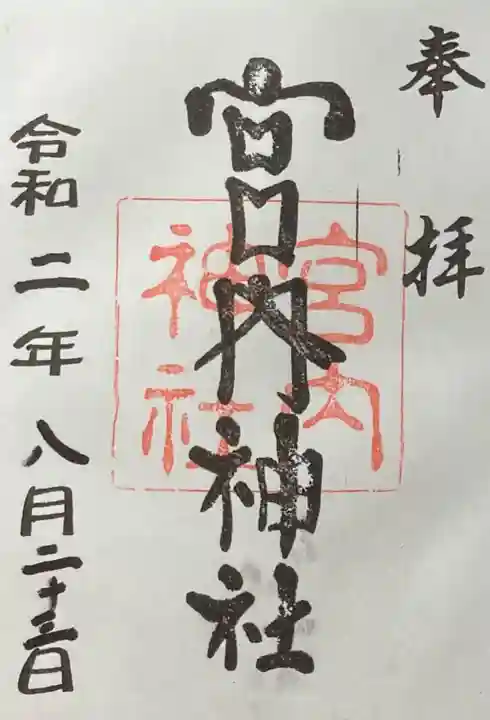 奉拝
宮内神社
宮内
神社
令和二年八月二十三日